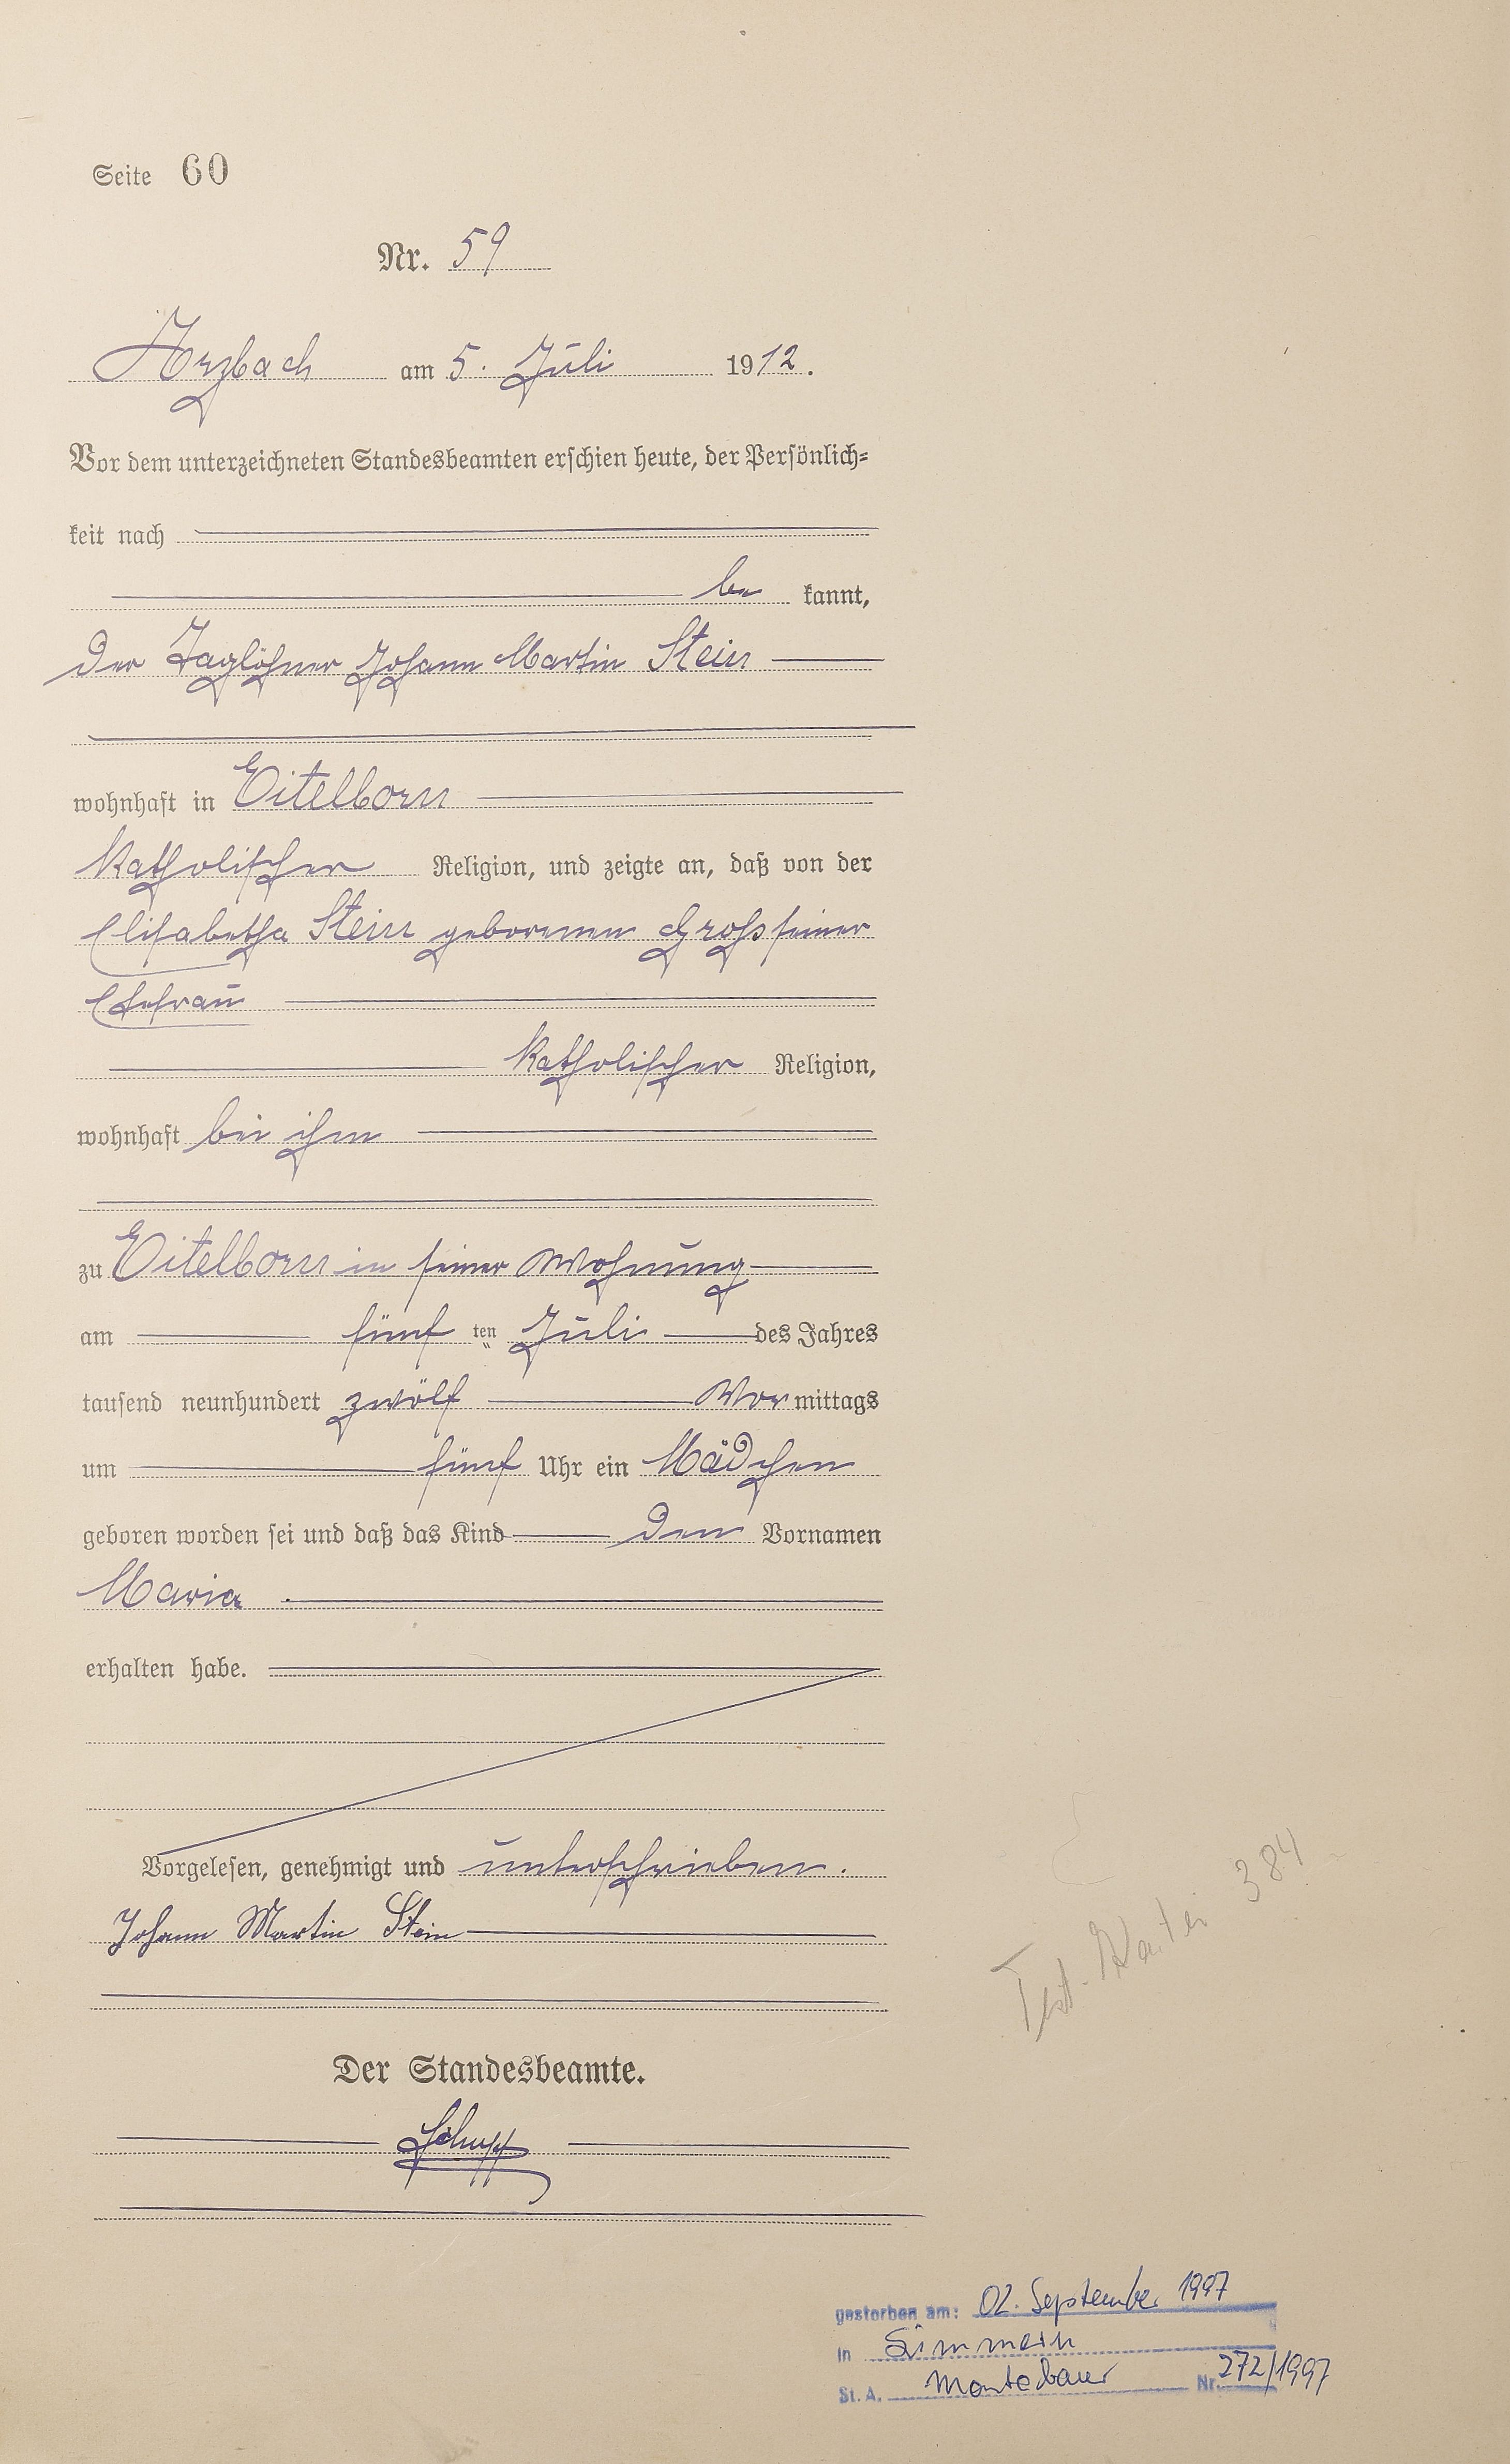 Seite 60
Nr. 59
Arzbach am 5. Juli 1912.
Vor dem unterzeichneten Standesbeamten erschien heute, der Persönlich-
keit nach
be kannt,
der Taglöhner Johann Martin Stein
wohnhaft in Eitelborn
katholischer Religion, und zeigte an, daß von der
Elisabetha Stein geborenen Groß seiner
Ehefrau
katholischer Religion,
wohnhaft bei ihm
zu Eitelborn in seiner Wohnung
am fünf ten Juli des Jahres
tausend neunhundert zwölf Vor mittags
um fünf Uhr ein Mädchen
geboren worden sei und daß das Kind den Vornamen
Maria
erhalten habe.
Vorgelesen, genehmigt und unterschrieben.
Johann Martin Stein
Test. Kartei 384
Der Standesbeamte.
Schupp
gestorben am: 02. September 1997
in Simmern
St. A. Montabaur Nr. 272/1997